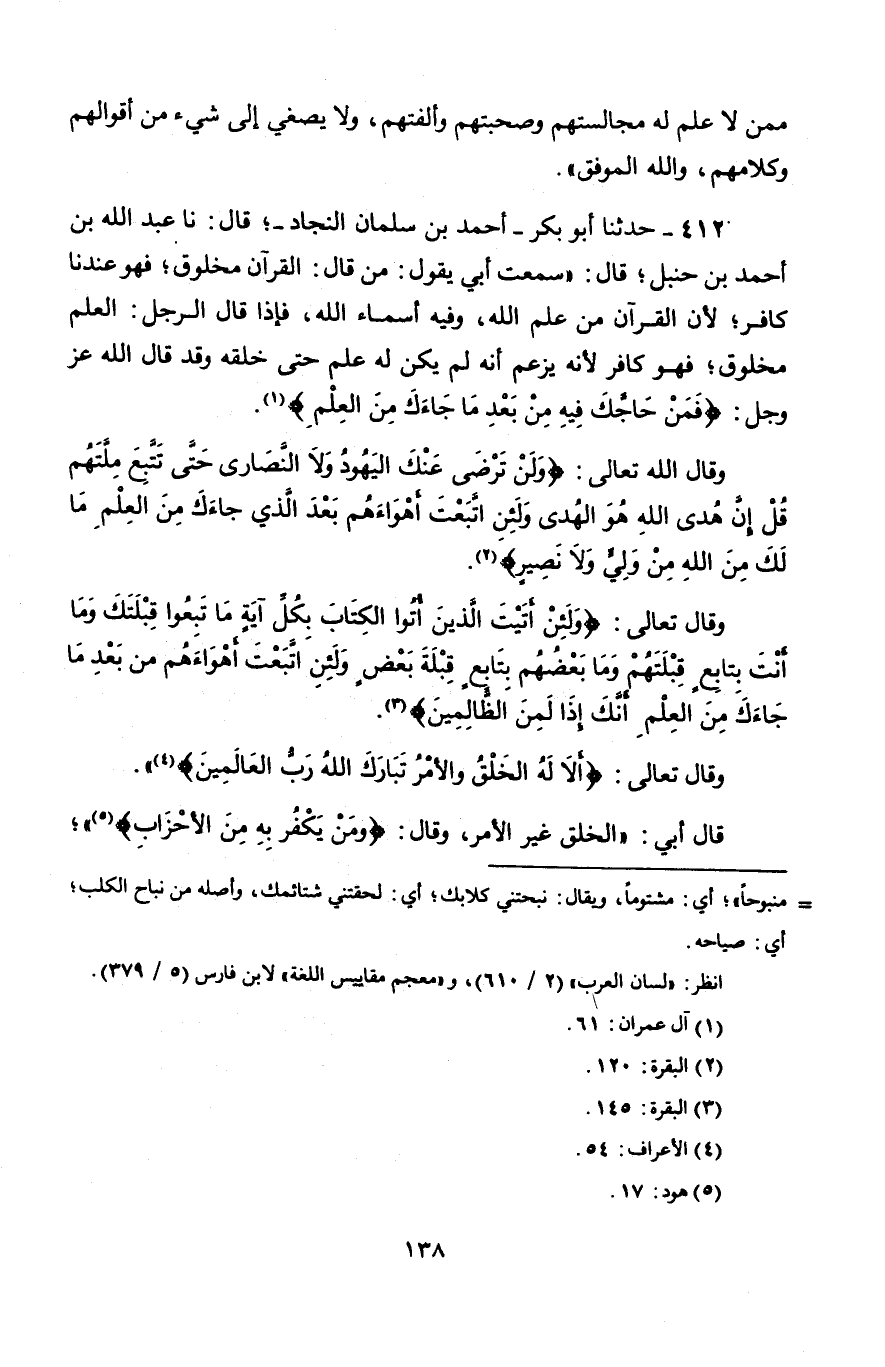 ممن لا علم له مجالستهم وصحبتهم وألفتهم، ولا يصغي إلى شيء من أقوالهم
وكلامهم، والله الموفق».
٤١٢ ـ حدثنا أبو بكر ـ أحمد بن سلمان النجاد ـ؛ قال: نا عبد الله بن
أحمد بن حنبل؛ قال: «سمعت أبي يقول: من قال: القرآن مخلوق؛ فهو عندنا
كافر؛ لأن القرآن من علم الله، وفيه أسماء الله، فإذا قال الرجل: العلم
مخلوق؛ فهو كافر لأنه يزعم أنه لم يكن له علم حتى خلقه وقد قال الله عز
وجل: ﴿فَمَنْ حَاجَّكَ فِيهِ مِنْ بَعْدِ مَا جَاءَكَ مِنَ العِلْمِ﴾(١).
وقال الله تعالى: ﴿وَلَنْ تَرْضَى عَنْكَ اليَهُودُ وَلاَ النَّصَارى حَتَّى تَتَّبِعَ مِلَّتَهُم
قُلْ إِنَّ هُدى اللهِ هُوَ الهُدى وَلَئِنِ اتَّبَعْتَ أَهْوَاءَهُم بَعْدَ الَّذي جاءَكَ مِنَ العِلْمِ مَا
لَكَ مِنَ اللهِ مِنْ وَلِيٍّ وَلاَ نَصِيرٍ﴾(٢).
وقال تعالى: ﴿وَلَئِنْ أَتَيْتَ الَّذينَ أُتُوا الكِتَابَ بِكُلِّ آيَةٍ مَا تَبِعُوا قِبْلَتَكَ وَمَا
أَنْتَ بِتابِعٍ قِبْلَتَهُمْ وَمَا بَعْضُهُم بِتَابِعٍ قِبْلَةَ بَعْضٍ وَلَئِنِ اتَّبَعْتَ أَهْوَاءَهُم من بَعْدِ مَا
جَاءَكَ مِنَ العِلْمِ أَنَّكَ إِذَا لَمِنَ الظَّالِمِينَ﴾(٣).
وقال تعالى: ﴿أَلَا لَهُ الخَلْقُ والأمْرُ تَبَارَكَ اللهُ رَبُّ العَالَمِينَ﴾(٤)».
قال أبي: «الخلق غير الأمر، وقال: ﴿ومَنْ يَكْفُر بِهِ مِنَ الأحْزَابِ﴾(٥)»؛
= منبوحاً»؛ أي: مشتوماً، ويقال: نبحتني كلابك؛ أي: لحقتني شتائمك، وأصله من نباح الكلب؛
أي: صياحه.
انظر: «لسان العرب» (٢ / ٦١٠)، و «معجم مقاييس اللغة» لابن فارس (٥ / ٣٧٩).
(١) آل عمران: ٦١.
(٢) البقرة: ١٢٠.
(٣) البقرة: ١٤٥.
(٤) الأعراف: ٥٤.
(٥) هود: ١٧.
١٣٨